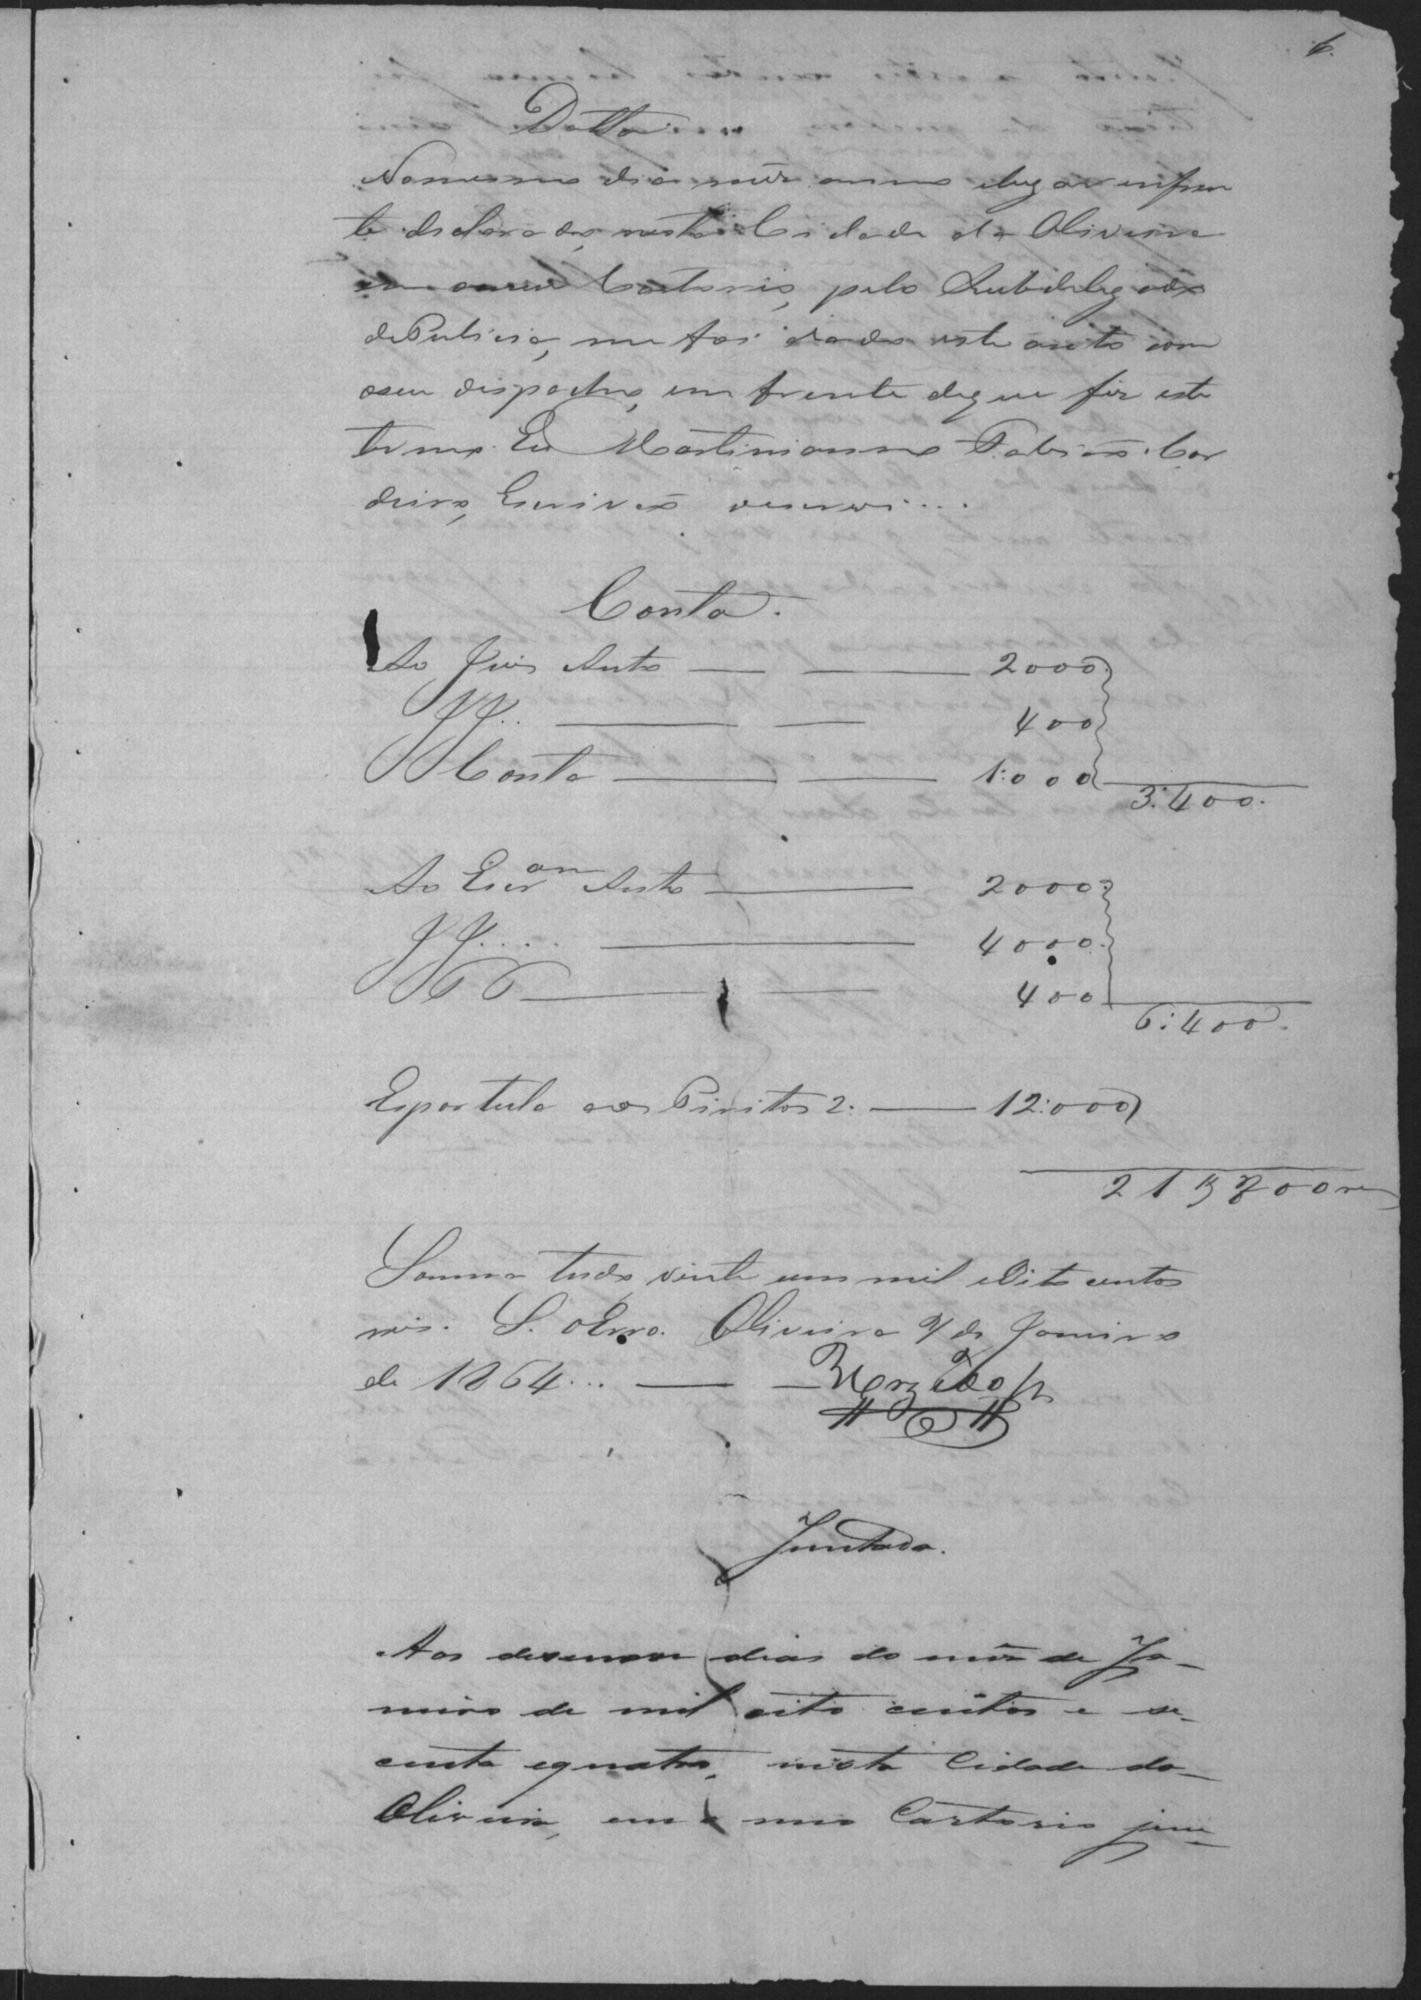 6.
Datta
No mesmo dia mez anno elugar infren
te declarado, nesta Cidade da Oliveira
em meu Cartorio, pelo Subdelegado
de Policia, me foi dado este auto com
oseu dispacho, em frente deque fiz este
termo. Eu Martinianno Fabião Cor
deiro, Escrivão oescrevi....
Conta.
Ao Juis Auto — — 2000
JJ.. — — 400
Conta — — 1:000 3:400.
Ao Escram Auto — 2000
JJ.... — 4000.
— — 400 6:400.
Espartula aos Piritos 2. — 12:000
21$800rs
Somma tudo vinte um mil eOito centos
reis. S. oErro. Oliveira 9 de Janeiro
de 1864... — —
Juntada.
Aos desenove dias do mez de Ja-
neiro de mil oito centos e se-
centa equatro, nesta Cidade da
Oliveira, em meo Cartorio jun-